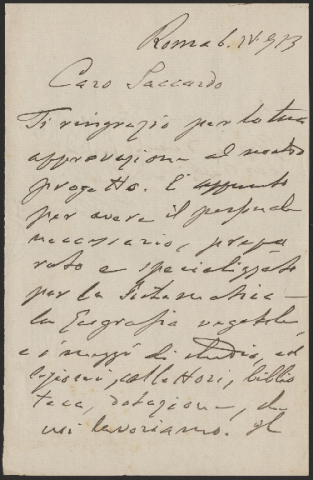 Roma 6. IV. 913
Caro Saccardo
Ti ringrazio per la tua
approvazione al nostro
progetto. È appunto
per avere il personale
necessario, prepa
rato e specializzato
per la Sistematica —
la Geografia vegetale,
e i mezzi di studio, col
lezioni, collettori, biblio
teca, dotazione, che
noi lavoriamo. Il